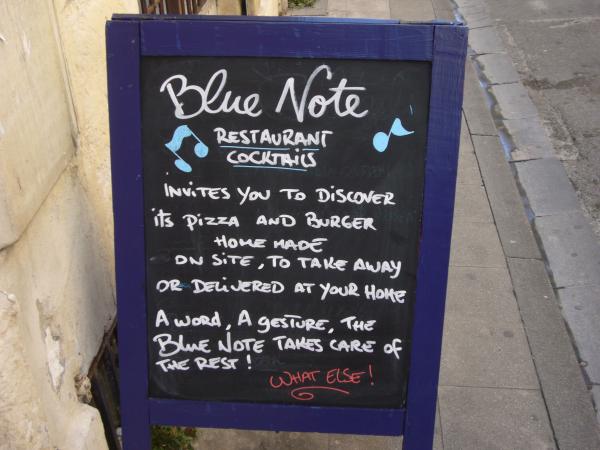 Blue Note
RESTAURANT
COCKTAILS
INVITES YOU TO DISCOVER
its PIZZA AND BURGER
HOME MADE
ON SITE, TO TAKE AWAY
OR DELIVERED AT YOUR HOME
A WORD, A GESTURE, THE
BLUE NOTE TAKES CARE OF
THE REST!
WHAT ELSE!